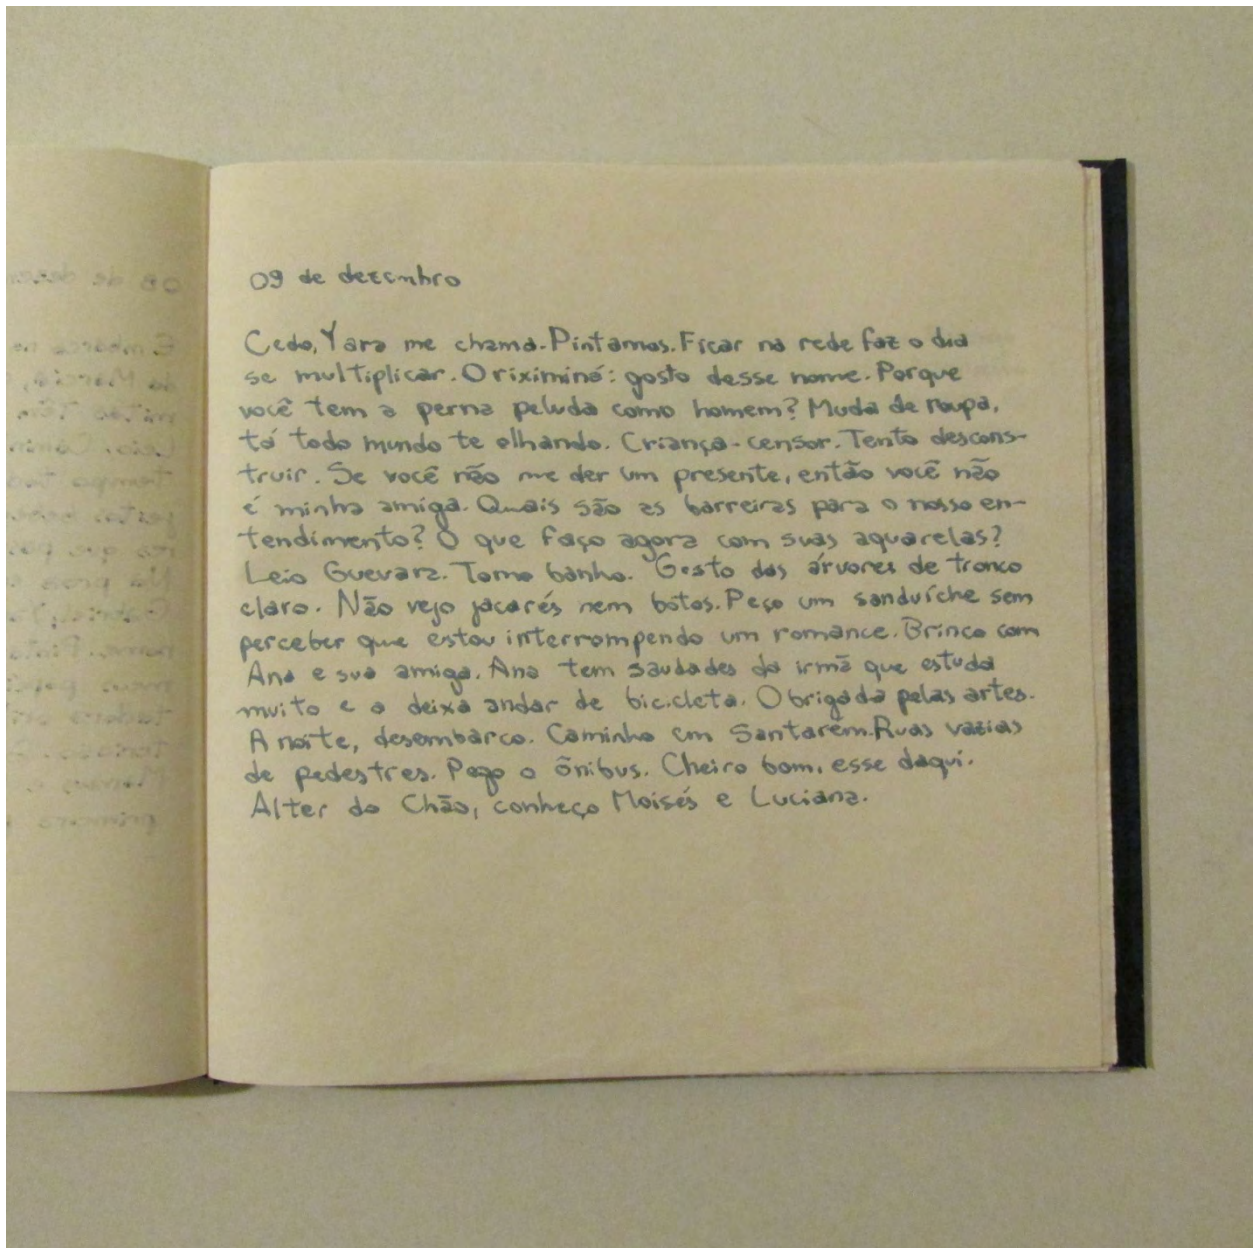 09 de dezembro
Cedo, Yara me chama. Pintamos. Ficar na rede faz o dia
se multiplicar. Oriximiná: gosto desse nome. Porque
você tem a perna peluda como homem? Muda de roupa,
tá todo mundo te olhando. Criança-censor. Tento descons-
truir. Se você não me der um presente, então você não
é minha amiga. Quais são as barreiras para o nosso en-
tendimento? O que faço agora com suas aquarelas?
Leio Guevara. Tomo banho. Gosto das árvores de tronco
claro. Não vejo jacarés nem botos. Peço um sanduíche sem
perceber que estou interrompendo um romance. Brinco com
Ana e sua amiga. Ana tem saudades da irmã que estuda
muito e a deixa andar de bicicleta. Obrigada pelas artes.
A noite, desembarco. Caminho em Santarém. Ruas vazias
de pedestres. Pego o ônibus. Cheiro bom, esse daqui.
Alter do Chão, conheço Moisés e Luciana.